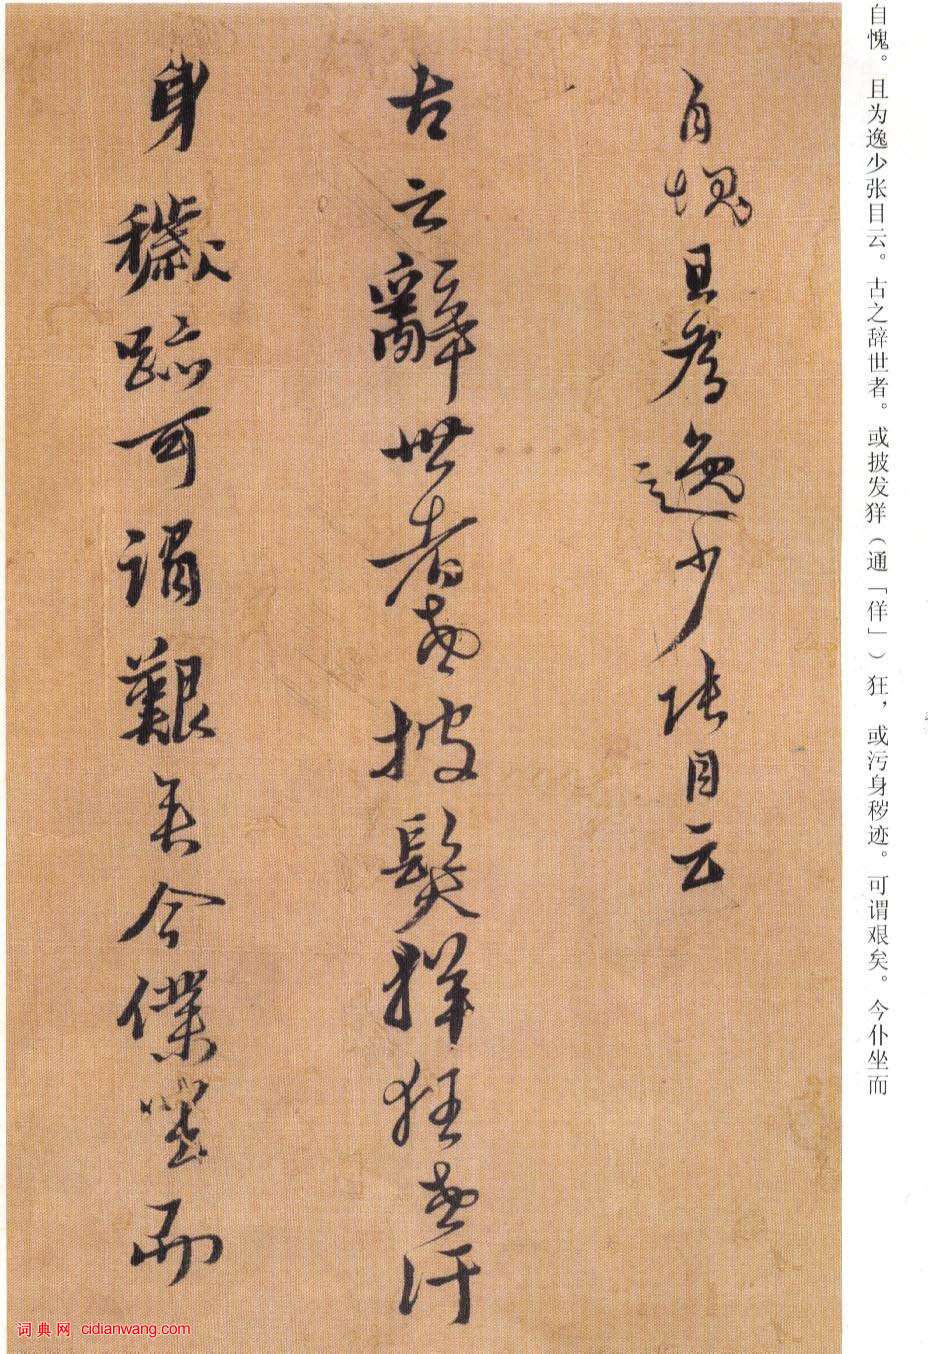 自愧。且为逸少张目云。古之辞世者。或披发（通「佯」）狂，或污身秽迹。可谓艰矣。今仆坐而
自愧且為逸少張目云
古之辭世者或披髮狂或汙
身穢跡可謂艱矣今僕坐而
词典网 cidianwang.com